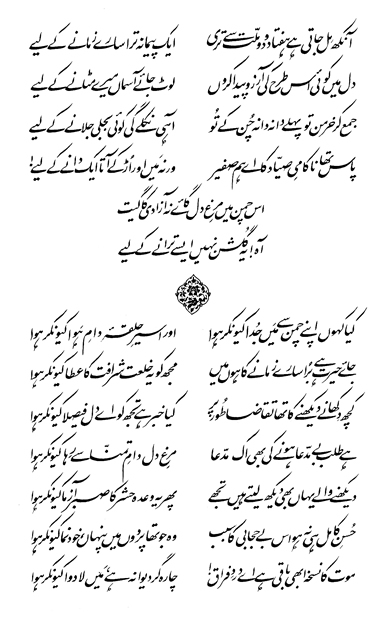 آنکھ مل جاتی ہے ہفتاد و دو ملت سے تری ایک پیمانہ ترا سارے زمانے کے لیے
دل میں کوئی اس طرح کی آرزو پیدا کروں لوٹ جائے آسماں میرے مٹانے کے لیے
جمع کر خرمن تو پہلے دانہ دانہ چن کے تو آہی نکلے گی کوئی بجلی جلانے کے لیے
پاس تھا ناکامیِ صیاد کا اے ہم صفیر ورنہ میں اور اڑ کے آتا ایک دانے کے لیے!
اس چمن میں مرغِ دل گائے نہ آزادی کا گیت
آہ! یہ گلشن نہیں ایسے ترانے کے لیے
کیا کہوں اپنے چمن سے میں جدا کیونکر ہوا اور اسیرِ حلقۂ دام ہوا کیونکر ہوا
جائے حیرت ہے برا سارے زمانے کا ہوں میں مجھ کو یہ خلعت شرافت کا عطا کیونکر ہوا
کچھ دکھانے دیکھنے کا تھا تقاضا طور پر کیا خبر ہے تجھ کو اے دل فیصلا کیونکر ہوا
ہے طلب بے مدعا ہونے کی بھی اک مدعا مرغِ دل دامِ تمنا سے رہا کیونکر ہوا
دیکھنے والے یہاں بھی دیکھ لیتے ہیں تجھے پھر یہ وعدہ حشر کا صبر آزما کیونکر ہوا
حسنِ کامل ہی نہ ہو اس بے حجابی کا سبب وہ جو تھا پردوں میں پنہاں خود نما کیونکر ہوا
موت کا نسخہ ابھی باقی ہے اے دردِ فراق! چارہ گر دیوانہ ہے، میں لا دوا کیونکر ہوا